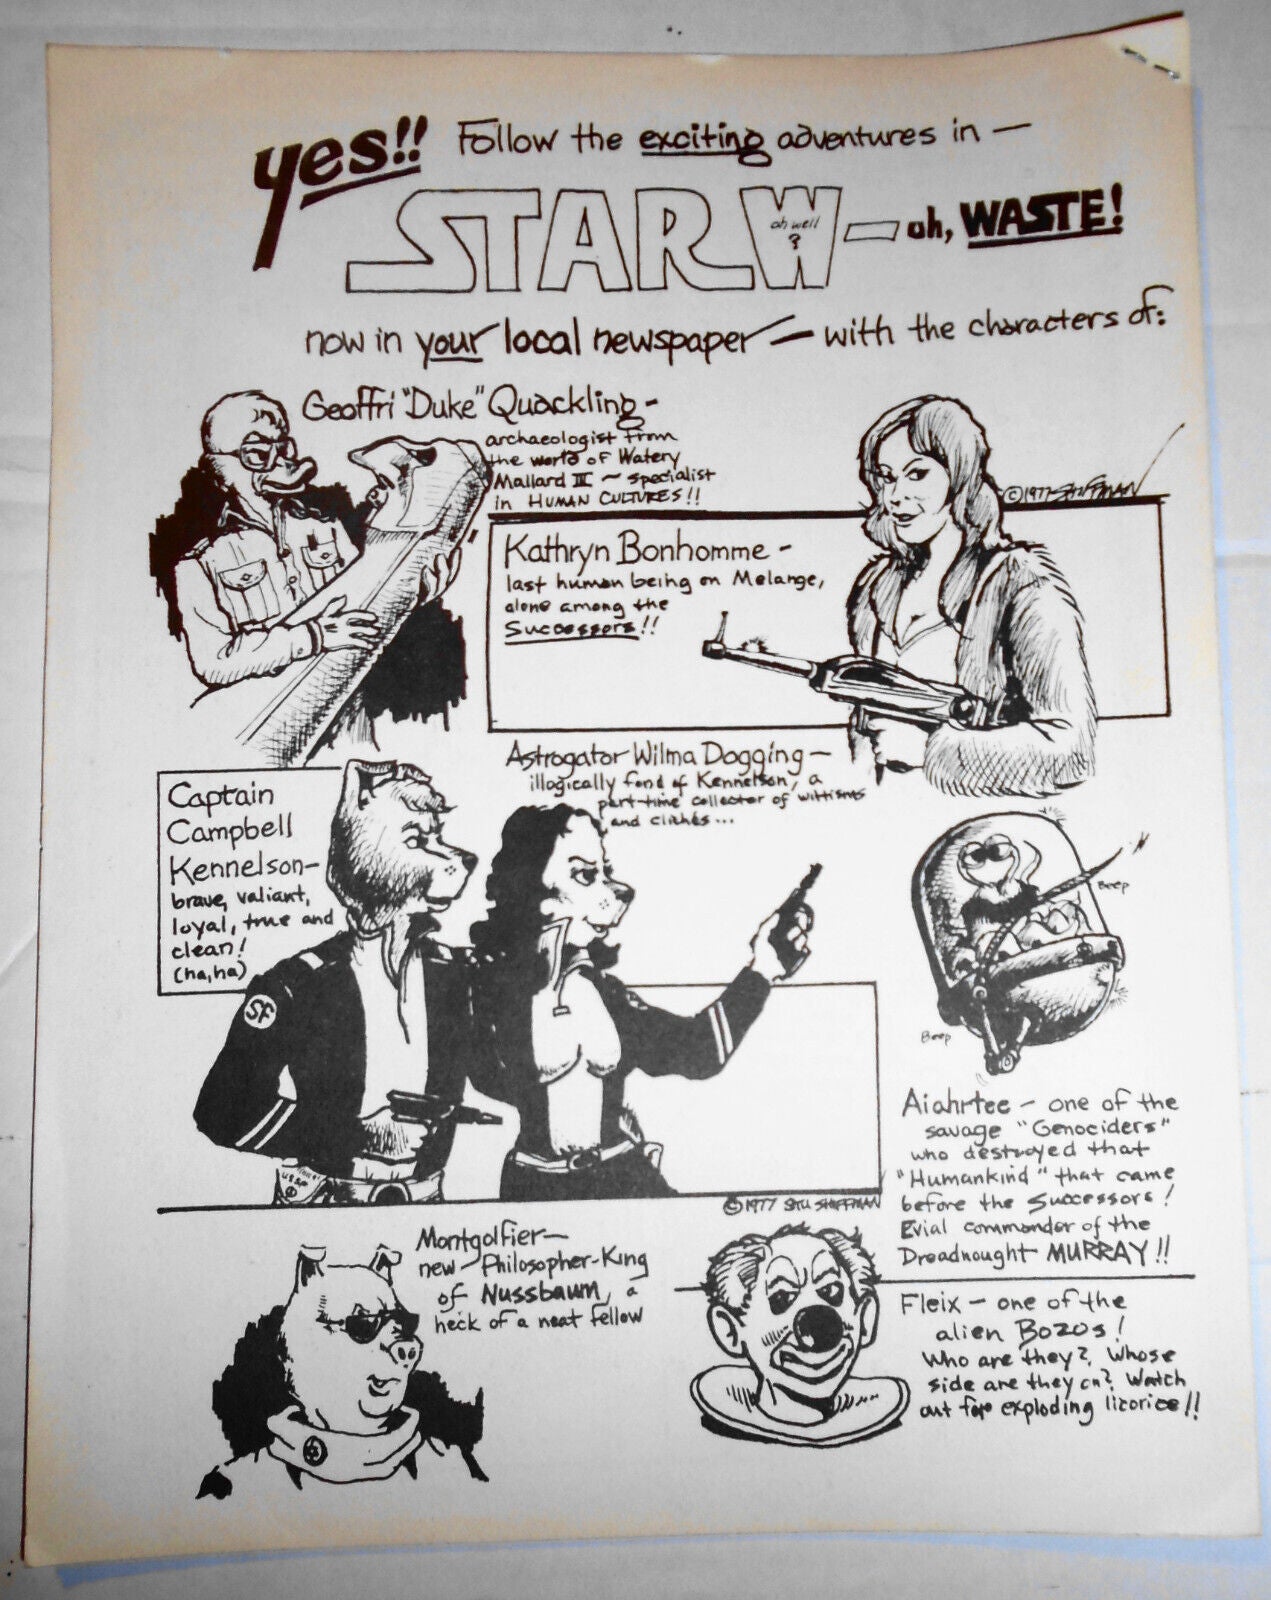 yes!! Follow the exciting adventures in —
STAR W — uh, WASTE!
oh well
?
now in your local newspaper — with the characters of:
Geoffri "Duke" Quackling —
archaeologist from
the world of Watery
Mallard III — specialist
in HUMAN CULTURES!!
©1977 SHIFFMAN
Kathryn Bonhomme —
last human being on Melange,
alone among the
Successors!!
Astrogator Wilma Dogging —
illogically fond of Kennelson, a
part-time collector of witticisms
and clichés...
Captain
Campbell
Kennelson —
brave, valiant,
loyal, true and
clean!
(ha, ha)
SF
Beep
Beep
Aiahrtee — one of the
savage "Genociders"
who destroyed that
"Humankind" that came
before the Successors!
Evial commander of the
Dreadnought MURRAY!!
©1977 STU SHIFFMAN
Montgolfier —
new Philosopher-King
of Nussbaum, a
heck of a neat fellow
Fleix — one of the
alien Bozos!
Who are they? Whose
side are they on? Watch
out for exploding licorice!!